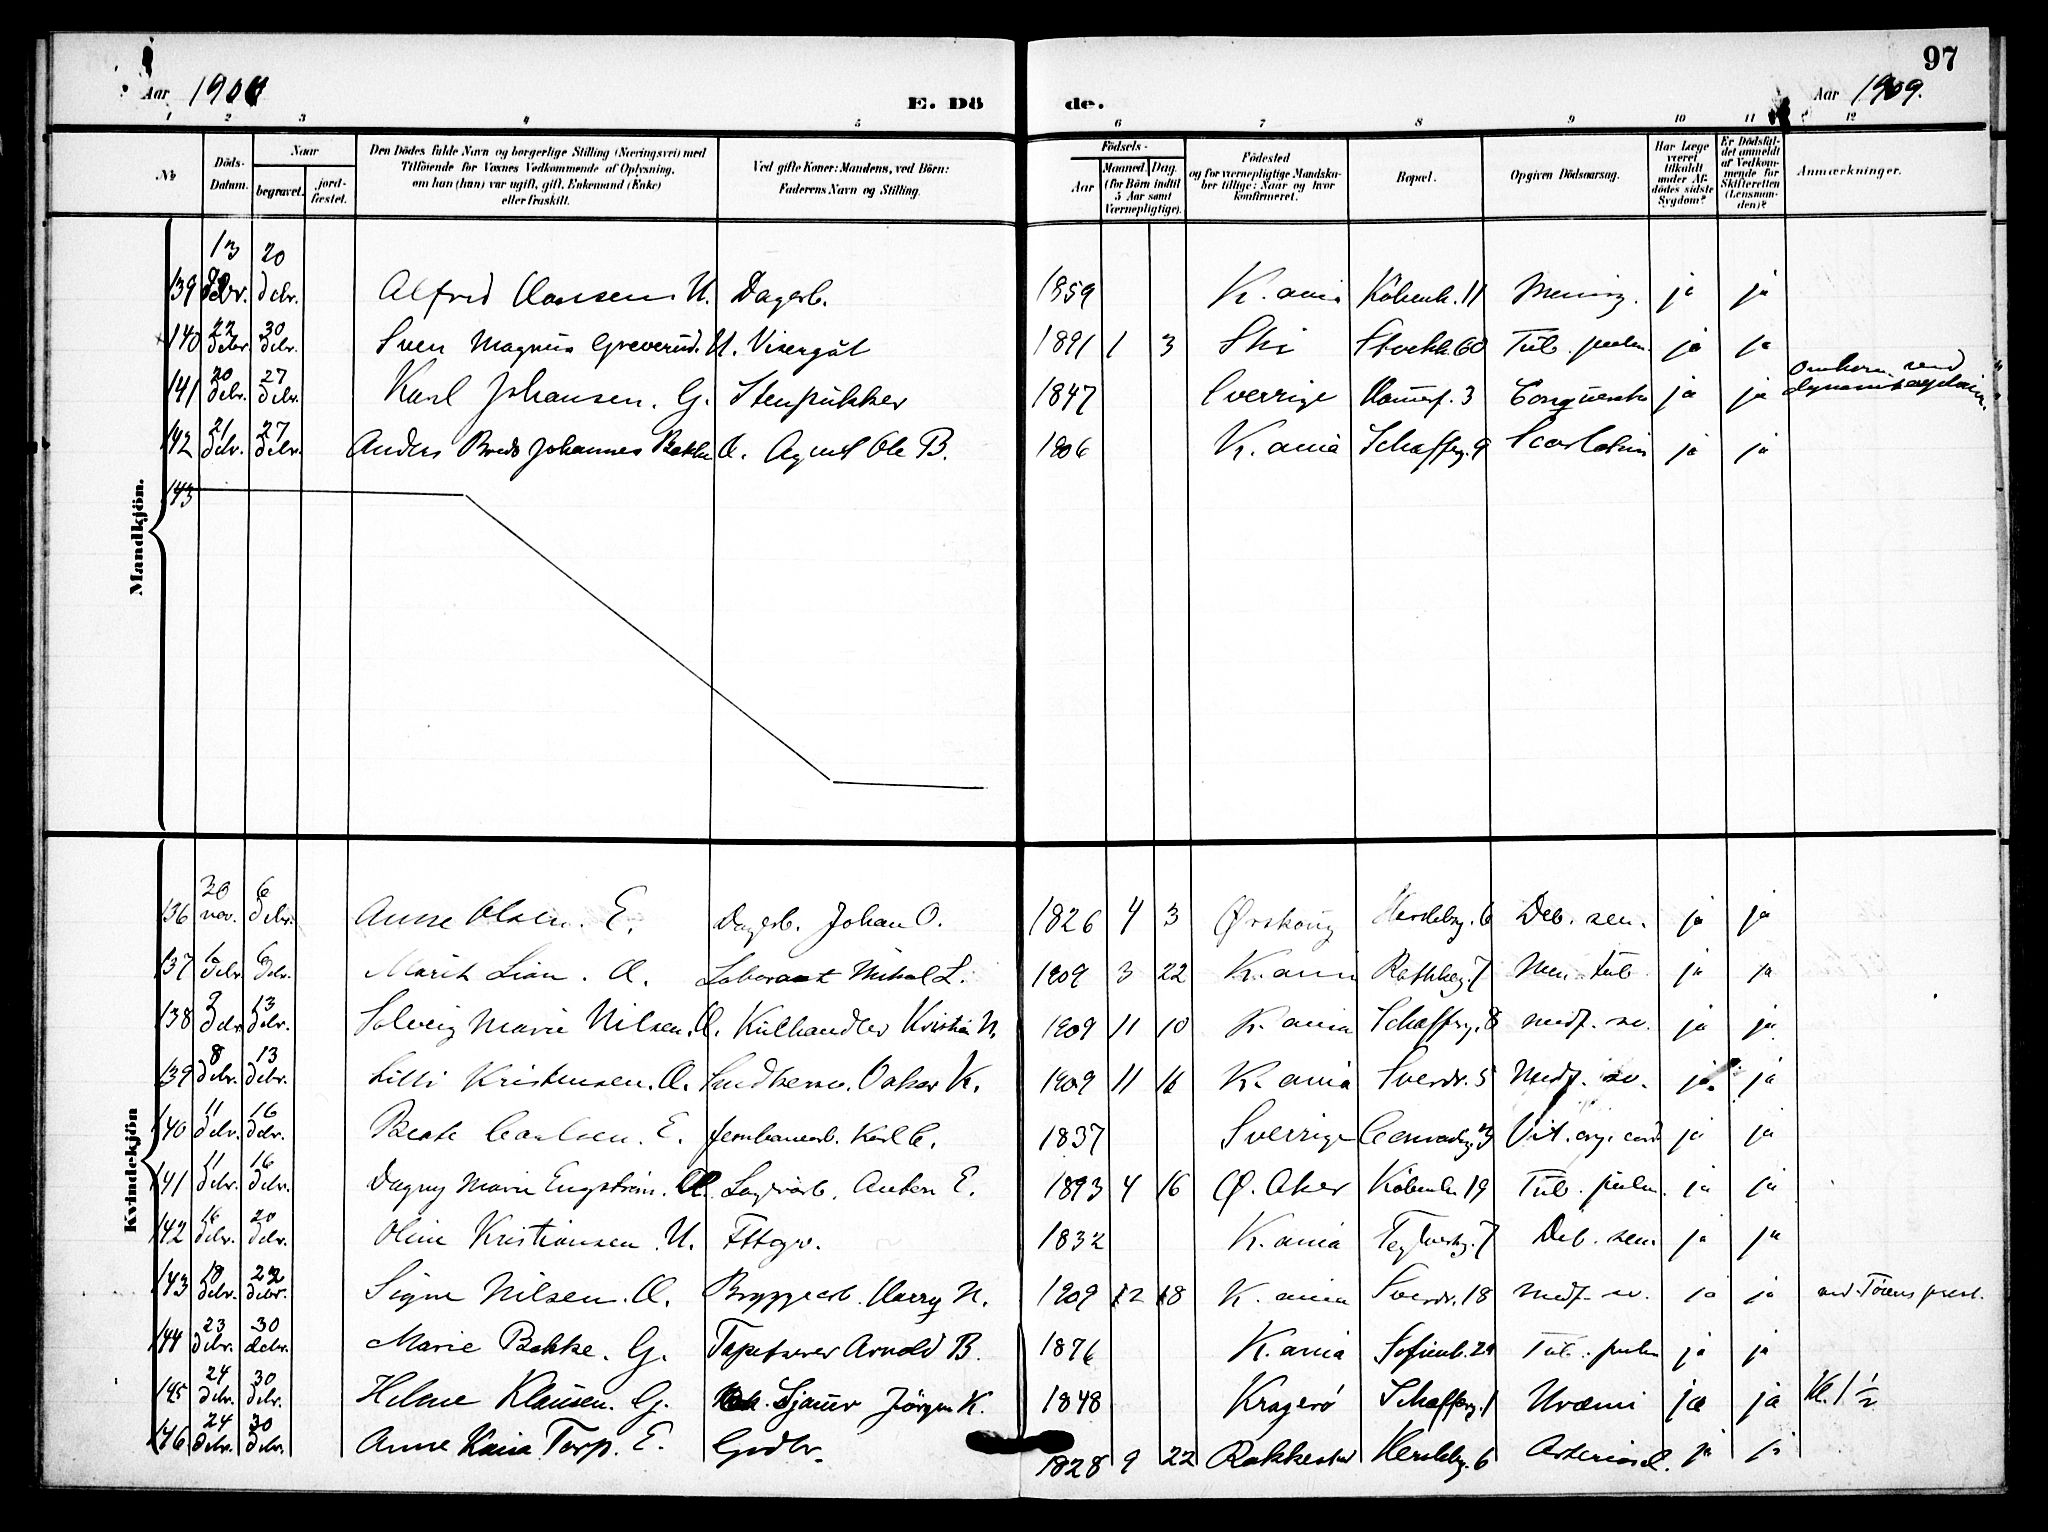 97
Aar 1909 E. Dö de. Aar 1909.
1 2 3 4 5 6 7 8 9 10 11 12
No
Döds-Datum.
Naar
begravet.
jord-fæstet.
Den Dödes fulde Navn og borgerlige Stilling (Næringsvei) med Tilföiende for Voxnes Vedkommende af Oplysning, om hun (han) var ugift, gift, Enkemand (Enke) eller fraskilt.
Ved gifte Koner: Mandens, ved Börn: Faderens Navn og Stilling.
Födsels-
Aar
Maaned. Dag.
(for Börn indtil 5 Aar samt Værnepligtige).
Födested
og for værnepligtige Mandskaber tillige: Naar og hvor konfirmeret.
Bopæl.
Opgiven Dödsaarsag.
Har Læge været tilkaldt under Afdödes sidste Sygdom?
Er Dödsfaldet anmeldt af Vedkommende for Skifteretten (Lensmanden)?
Anmærkninger.
Mandkjön.
139 13 debr. 20 debr. Alfred Hansen U. Dagarb. 1859 K.ania Köbenh. 11 Mening. ja ja
140 22 debr. 30 debr. Sven Magnus Greverud. U. Visergut 1891 1 3 Ski Stockh. 60 Tub. pulm. ja ja
141 20 debr. 27 debr. Karl Johansen. G. Stenpukker 1847 Sverrige Hamerf. 3 ja ja omkom ved
142 21 debr. 27 debr. Anders Johannes Bakke U. Ole B. 1906 K.ania Schafferg. 9 Scarlatin ja ja
143
Kvindekjön
136 30 nov. 6 debr. Anne Olsen. E. Dagarb. Johan O. 1826 4 3 Ørskoug Herslebg. 6 Deb. sen. ja ja
137 debr. 6 debr. Marit Lian. U. Laborant Mikal L. 1909 3 22 K.ania Rathkeg. 7 Men. tub ja ja
138 debr. 13 debr. Solveig Marie Nilsen. U. Kulhandler Kristian N. 1909 11 10 K.ania Schafferg. 8 Medf. sv. ja ja
139 8 debr. 13 debr. Lilli Kristensen. U. Smedsvend. Oskar K. 1909 11 16 K.ania Sverdr. 5 Medf. sv. ja ja
140 11 debr. 16 debr. Beate Carlsen. E. Jernbanearb. Karl C. 1837 Sverrige Vit. org. cord ja ja
141 11 debr. 16 debr. Dagny Marie Engström. U. Anton E. 1893 4 16 Ø. Aker Köbenh 19 Tub. pulm. ja ja
142 16 debr. 20 debr. Oline Kristiansen. U. Fttgv. 1832 K.ania Teglverksg. 7 Deb. sen ja ja
143 18 debr. 22 debr. Signe Nilsen. U. Bryggearb. Harry N. 1909 12 18 K.ania Sverdr. 18 Medf. sv. ja ja
144 23 debr. 30 debr. Marie Bakke. G. Tapetserer Arnold B. 1876 K.ania Sofienb. 29 Tub. pulm ja ja
145 24 debr. 30 debr. Helene Klausen. G. Sjauer Jörgen K. 1848 Kragerö Schafferg. 1 Uræmi ja ja Kl. 1 1/2
146 24 debr. 30 debr. Anne Karia Torp. E. Grdbr. 1828 9 22 Rakkestad Herslebg. 6 Arterioscl. ja ja